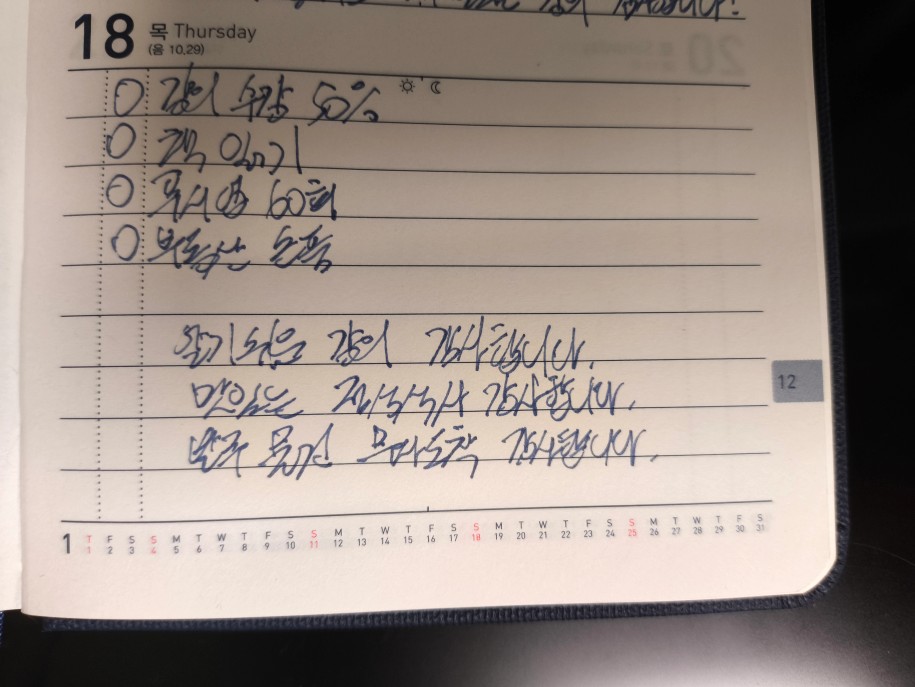 감사합니다!
18 목 Thursday
(음 10.29)
강의 수강 50%
책 읽기
푸시업 60회
부동산 손품
듣기 쉬운 강의 감사합니다.
맛있는 저녁식사 감사합니다.
발주 물건 무사도착 감사합니다.
12
1 T F S S M T W T F S S M T W T F S S M T W T F S S M T W T F S
1 2 3 4 5 6 7 8 9 10 11 12 13 14 15 16 17 18 19 20 21 22 23 24 25 26 27 28 29 30 31